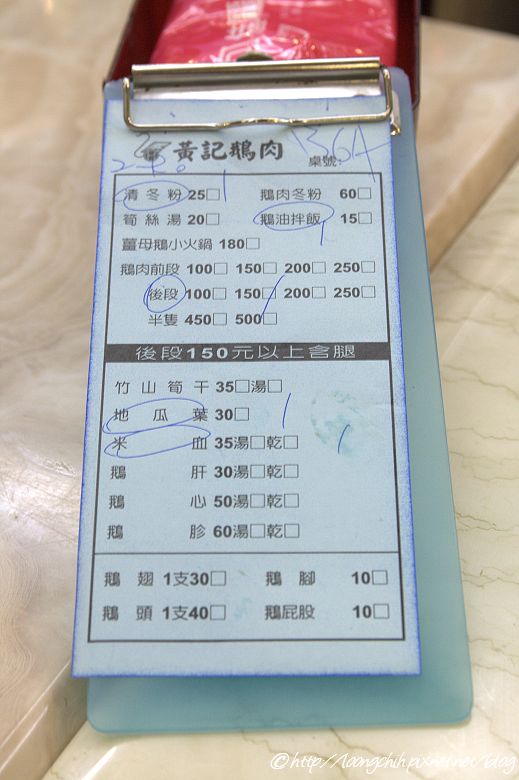 黃記鵝肉 桌號: B6A
清冬粉 25□ 鵝肉冬粉 60□
筍絲湯 20□ 鵝油拌飯 15□
薑母鵝小火鍋 180□
鵝肉前段 100□ 150□ 200□ 250□
後段 100□ 150□ 200□ 250□
半隻 450□ 500□
後段150元以上含腿
竹山筍干 35□湯□
地瓜葉 30□
米血 35湯□乾□
鵝肝 30湯□乾□
鵝心 50湯□乾□
鵝胗 60湯□乾□
鵝翅 1支30□ 鵝腳 10□
鵝頭 1支40□ 鵝屁股 10□
©http://loongchih.pixnet.net/blog